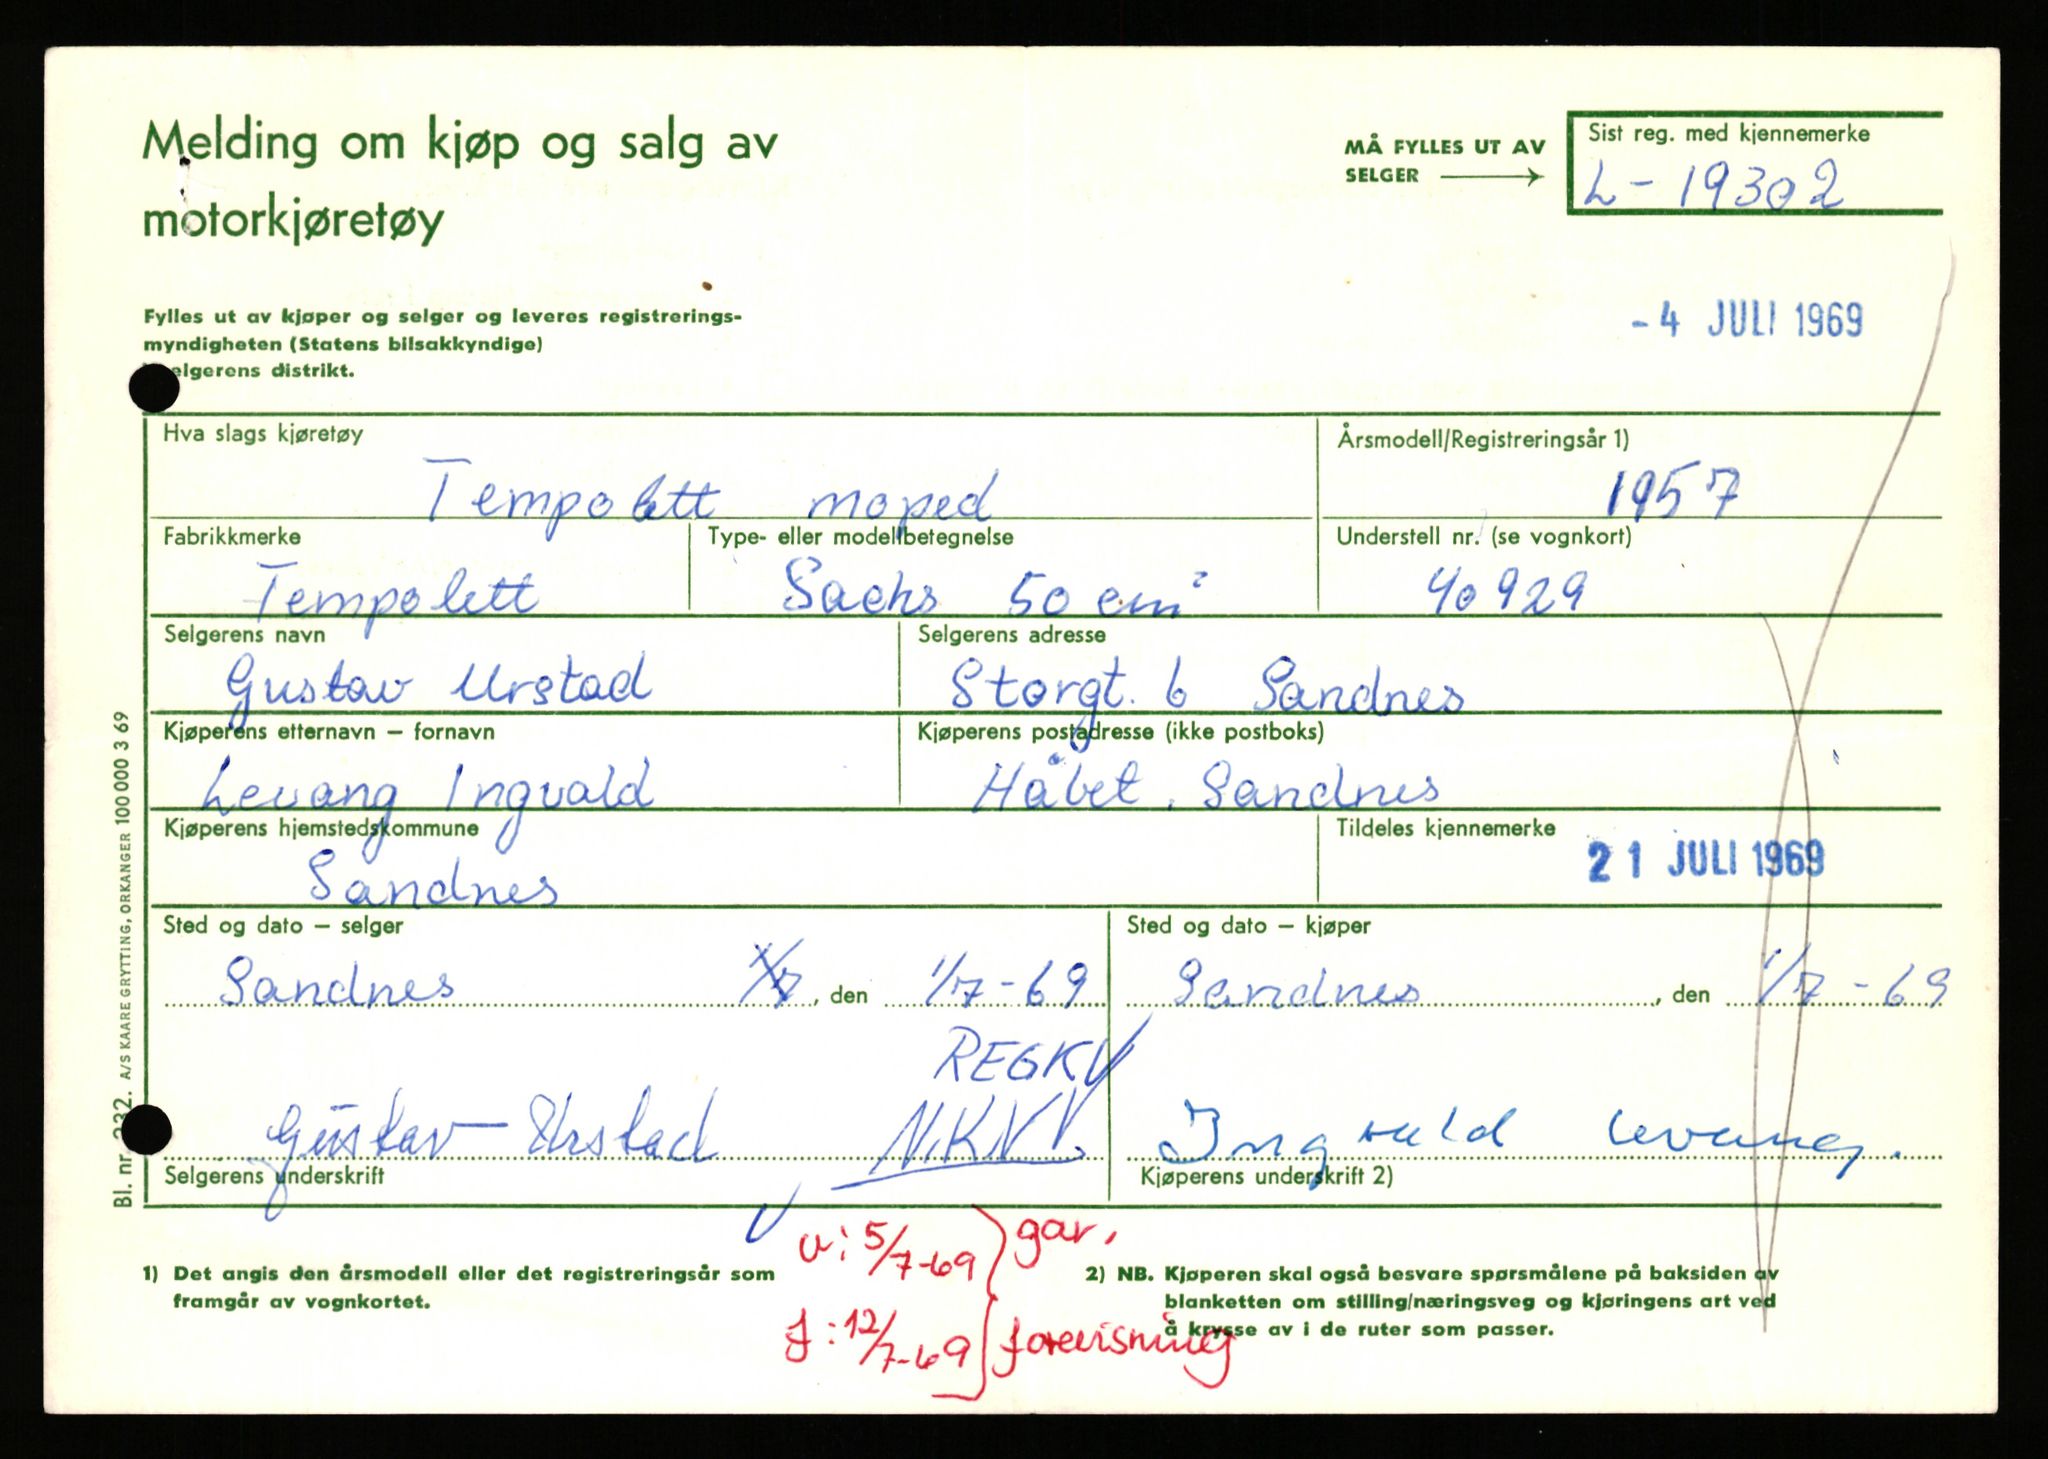 Melding om kjøp og salg av
motorkjøretøy
MÅ FYLLES UT AV
SELGER
Sist reg. med kjennemerke
L-19302
- 4 JULI 1969
Fylles ut av kjøper og selger og leveres registrerings-
myndigheten (Statens bilsakkyndige)
selgerens distrikt.
Hva slags kjøretøy
Tempolett moped
Årsmodell/Registreringsår 1)
1957
Fabrikkmerke
Tempolett
Type- eller modellbetegnelse
Sachs 50 cm²
Understell nr. (se vognkort)
40929
Selgerens navn
Gustav Urstad
Selgerens adresse
Storgt. 6 Sandnes
Kjøperens etternavn – fornavn
Levang Ingvald
Kjøperens postadresse (ikke postboks)
Håbet, Sandnes
Kjøperens hjemstedskommune
Sandnes
Tildeles kjennemerke
21 JULI 1969
Sted og dato – selger
Sandnes , den 1/7-69
Sted og dato – kjøper
Sandnes , den 1/7-69
REGKV
N.KNV.
Gustav Urstad
Selgerens underskrift
Ingvald Levang.
Kjøperens underskrift 2)
v: 5/7-69 } gar.
f: 12/7-69 } forevisning
1) Det angis den årsmodell eller det registreringsår som
framgår av vognkortet.
2) NB. Kjøperen skal også besvare spørsmålene på baksiden av
blanketten om stilling/næringsveg og kjøringens art ved
å krysse av i de ruter som passer.
Bl. nr. 232. A/S KAARE GRYTTING, ORKANGER 100 000 3 69